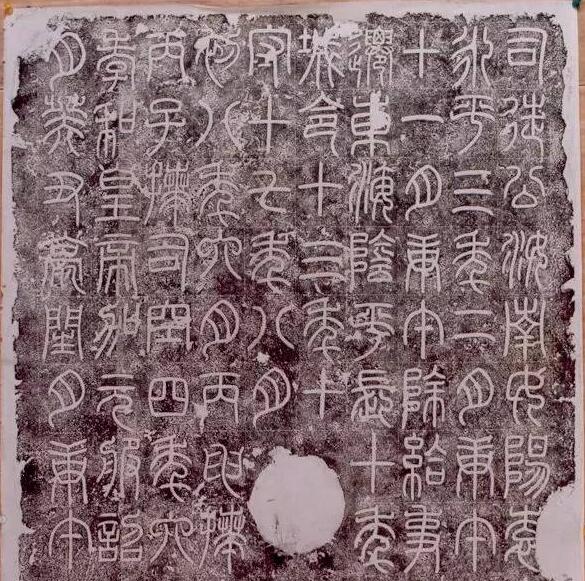 司徒公汝南女陽袁
永平三年二月庚午
十一月庚午除給事
遷東海陰平長十年
城令十三年十
守十七年八月
初八年六月丙申拜
丙子拜司空四年六
孝和皇帝加元服詔
月癸丑薨閏月庚午